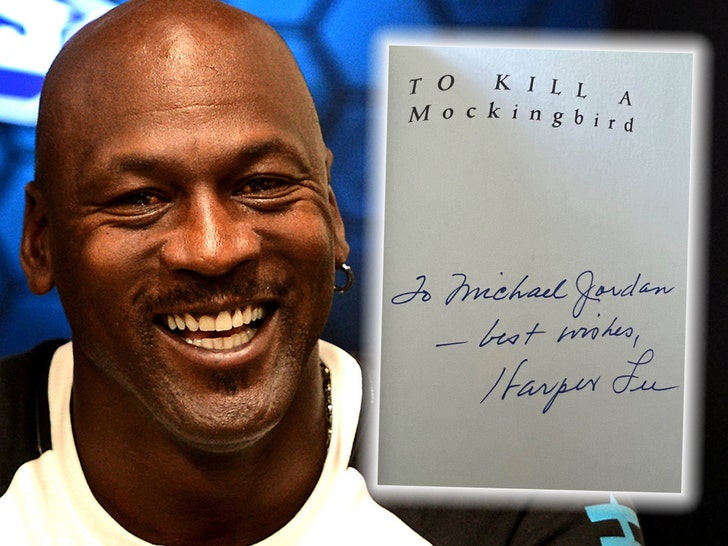 TO KILL A
Mockingbird
To Michael Jordan
– best wishes,
Harper Lee